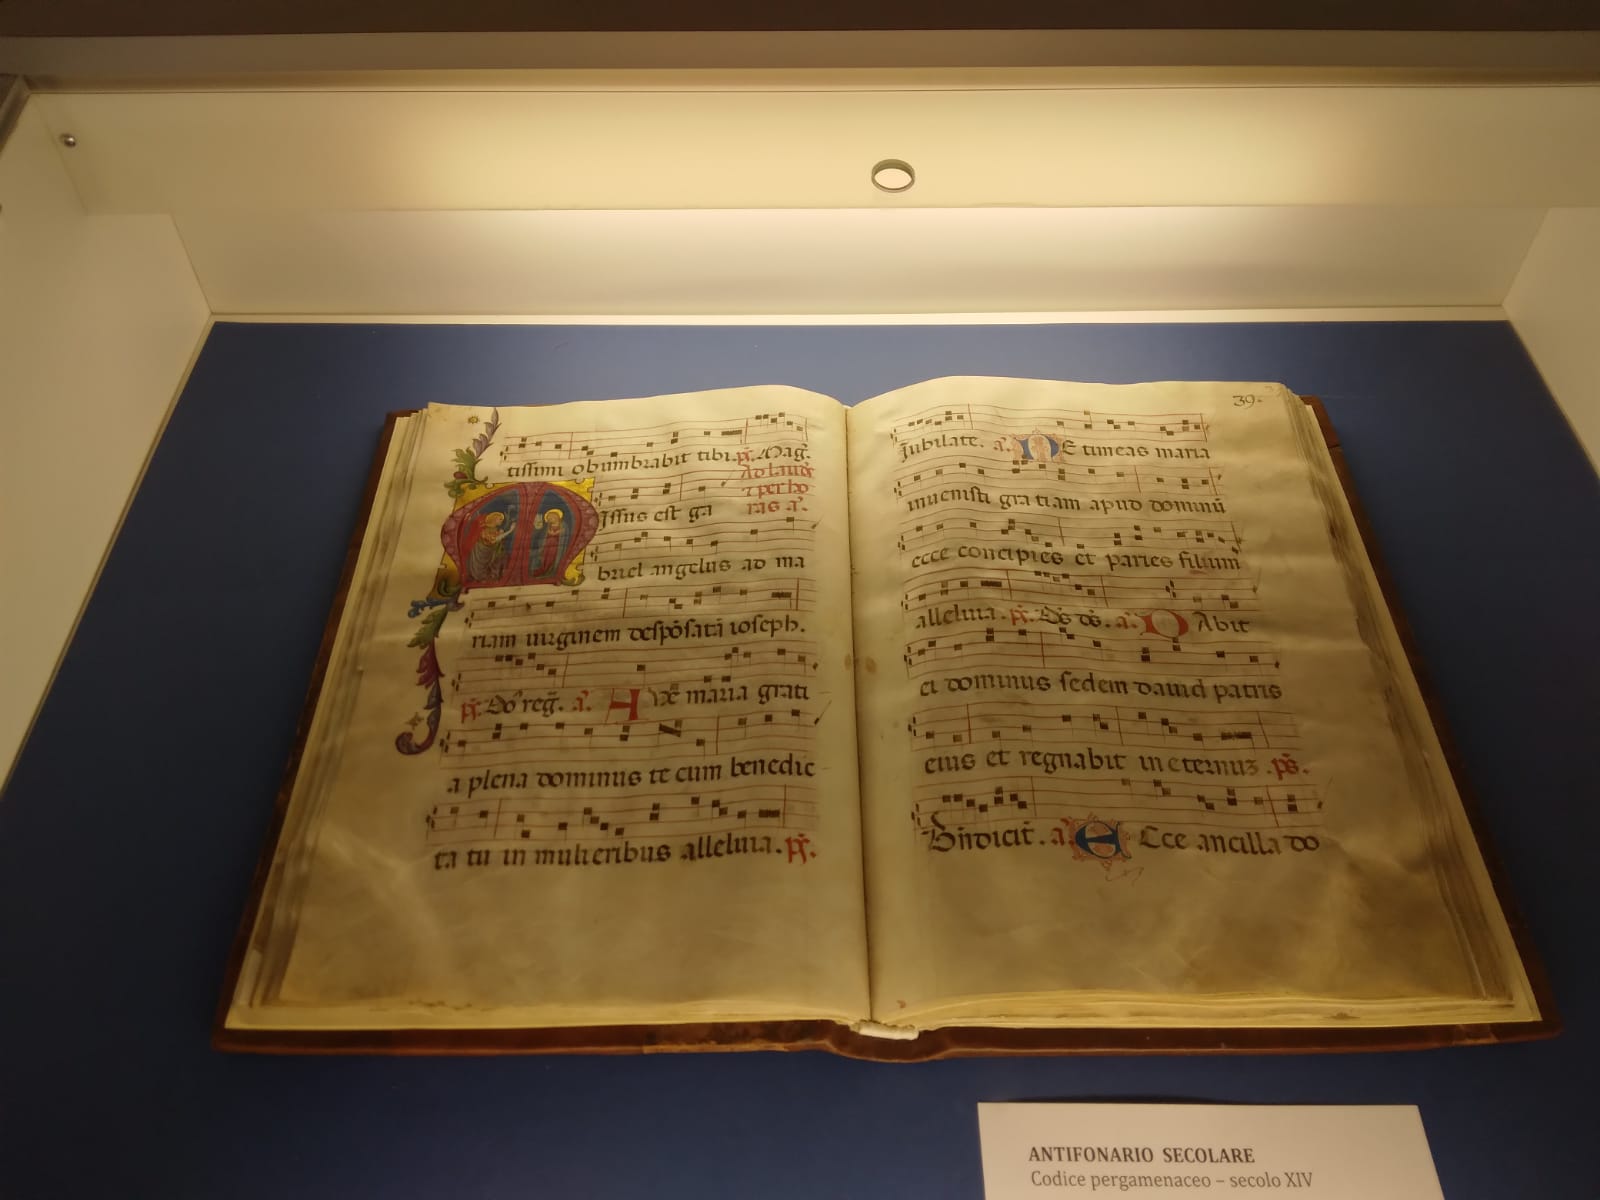 tissimi obumbrabit tibi. ps. Mag.
Ad laud
Missus est ga
⁊ per ho
ras a.
briel angelus ad ma
riam uirginem despōsatā ioseph.
ps. Dn̄s reḡ. a. Aue maria grati
a plena dominus te cum benedic
ta tu in mulieribus alleluia. ps.
39.
Iubilate. a. Ne timeas maria
inuenisti gratiam apud dominū
ecce concipies et paries filium
alleluia. ps. Ds̄ ds̄. a. Dabit
ei dominus sedem dauid patris
eius et regnabit in eternuꝫ. ps.
Bn̄dicit. a. Ecce ancilla do
ANTIFONARIO SECOLARE
Codice pergamenaceo – secolo XIV